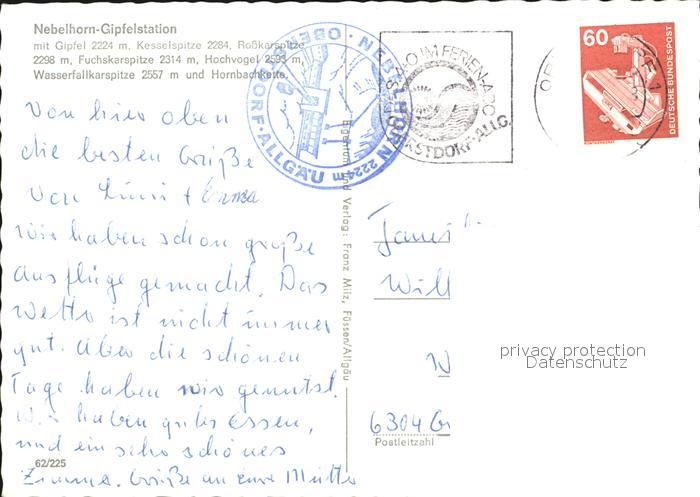 Nebelhorn-Gipfelstation
mit Gipfel 2224 m, Kesselspitze 2284, Roßkarspitze
2298 m, Fuchskarspitze 2314 m, Hochvogel 2593 m,
Wasserfallkarspitze 2557 m und Hornbachkette.
Von hier oben
die besten Grüße
von + Erna
wir haben schon große
Ausflüge gemacht. Das
Wetter ist nicht immer
gut. Aber die schönen
Tage haben wir genutzt.
Wir haben gutes Essen,
und ein sehr schönes
Zimmer. Grüße an eure Mutter
62/225
NEBELHORN 2224 m
OBERSTDORF · ALLGÄU
Eigentum und Verlag: Franz Milz, Füssen/Allgäu
IM FERIEN-
STDORF-ALLG.
60
DEUTSCHE BUNDESPOST
Will
W
6304 G
Postleitzahl
privacy protection
Datenschutz